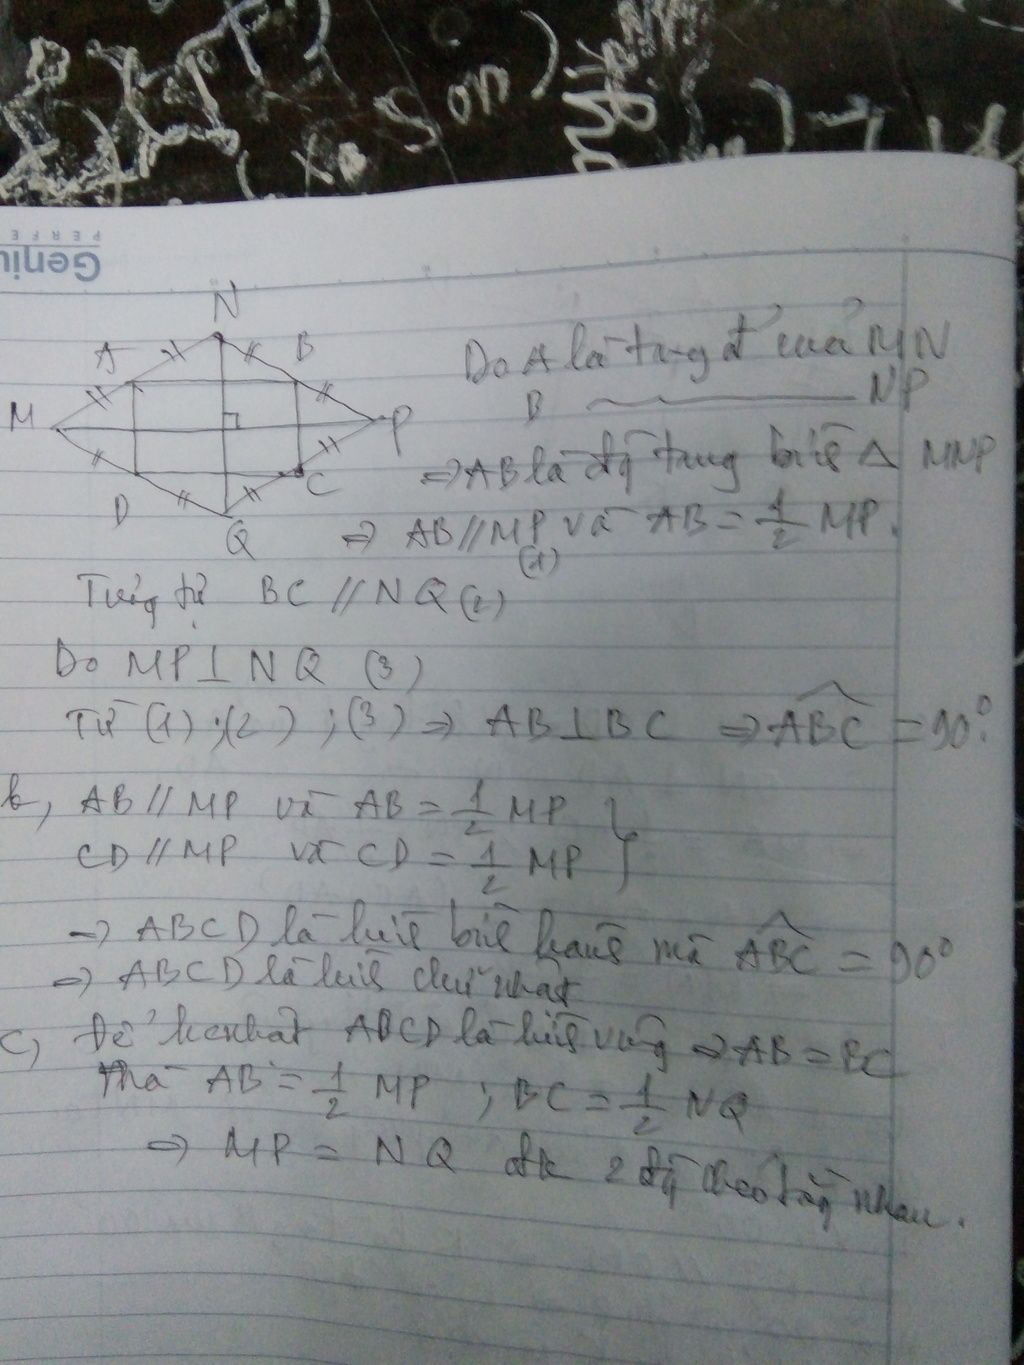 Son)
Geniu
PERFE
N
A
B
M
P
D
C
Q
Do A là trung đ' của MN
B NP
⇒ AB là đg trung bình Δ MNP
⇒ AB // MP và AB = 1/2 MP.
(1)
Tương tự BC // NQ (2)
Do MP ⊥ NQ (3)
Từ (1); (2); (3) ⇒ AB ⊥ BC ⇒ \widehat{ABC} = 90°.
b, AB // MP và AB = 1/2 MP }
CD // MP và CD = 1/2 MP
⇒ ABCD là hình bình hành mà \widehat{ABC} = 90°
⇒ ABCD là hình chữ nhật
c, Để hcnhật ABCD là hình vuông ⇒ AB = BC
Mà AB = 1/2 MP ; BC = 1/2 NQ
⇒ MP = NQ đk 2 đg chéo bằng nhau.